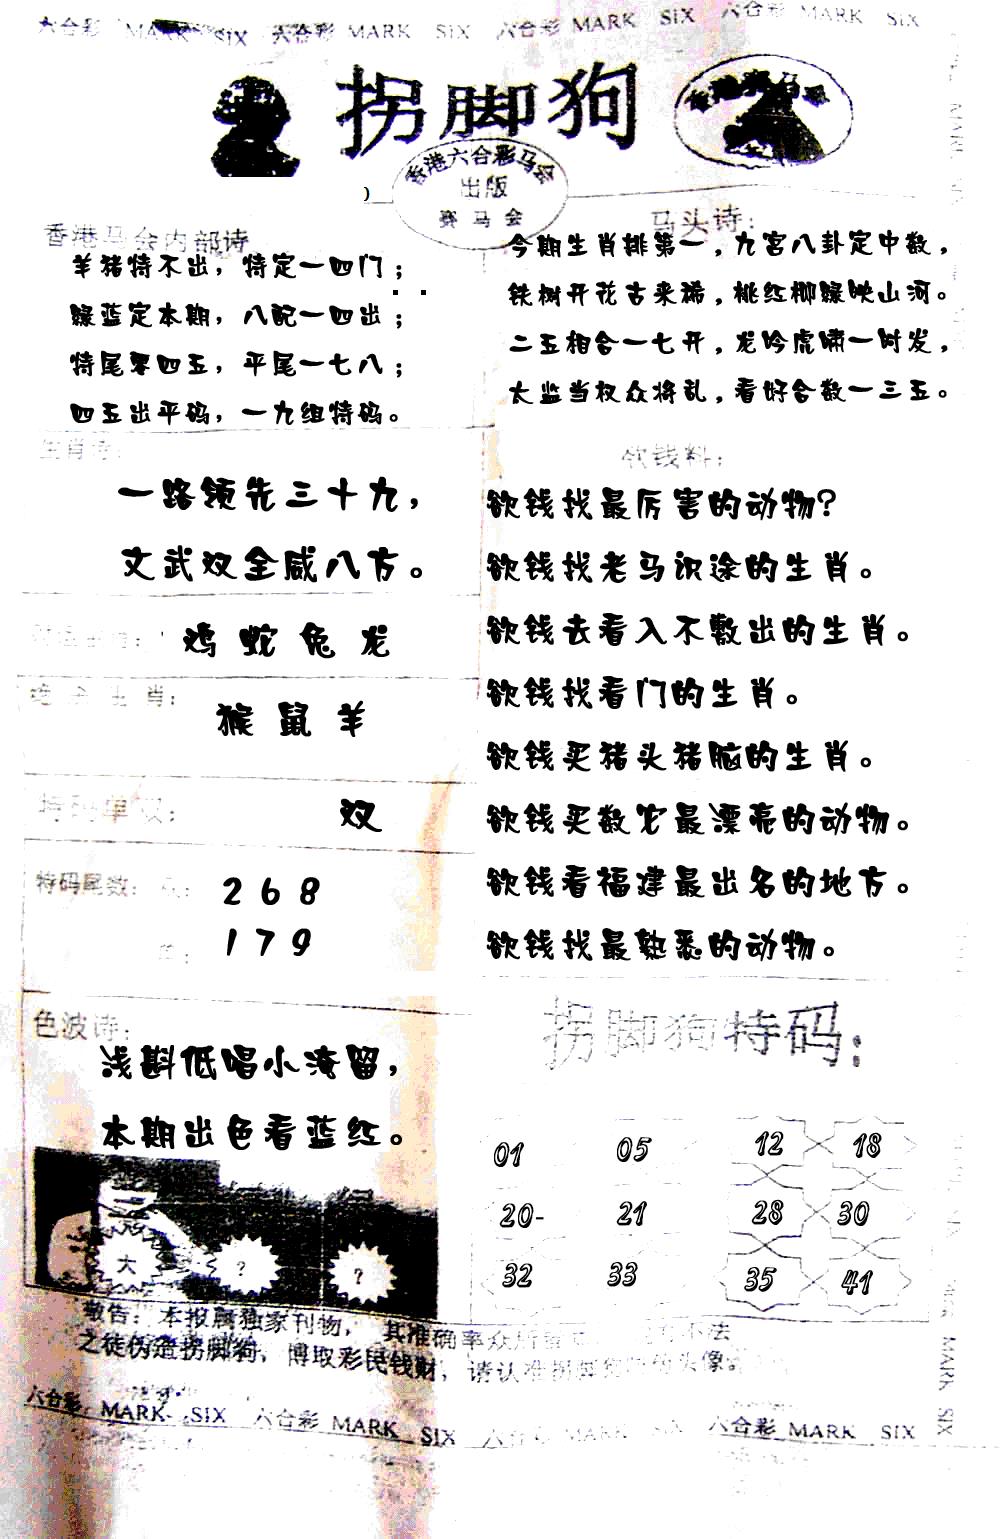 六合彩 MARK SIX 六合彩 MARK SIX 六合彩 MARK SIX 六合彩 MARK SIX
拐脚狗
香港六合彩马会
出版
赛马会
香港马会内部诗
羊猪特不出，特定一四门；
绿蓝定本期，八配一四出；
特尾零四五，平尾一七八；
四五出平码，一九组特码。
马头诗：
今期生肖排第一，九宫八卦定中数，
铁树开花古来稀，桃红柳绿映山河。
二五相合一七开，龙吟虎啸一时发，
太监当权众将乱，看好合数一三五。
生肖诗：
一路领先三十九，
文武双全威八方。
鸡 蛇 兔 龙
绝杀生肖：
猴 鼠 羊
特码单双：
双
特码尾数：
2 6 8
1 7 9
色波诗：
浅斟低唱小淹留，
本期出色看蓝红。
大 ? ?
欲钱料：
欲钱找最厉害的动物?
欲钱找老马识途的生肖。
欲钱去看入不敷出的生肖。
欲钱找看门的生肖。
欲钱买猪头猪脑的生肖。
欲钱买数它最漂亮的动物。
欲钱看福建最出名的地方。
欲钱找最熟悉的动物。
拐脚狗特码：
01 05 12 18
20- 21 28 30
32 33 35 41
敬告：本报属独家刊物，其准确率众所 不法
之徒伪造拐脚狗，博取彩民钱财，请认准拐脚 头像
六合彩 MARK SIX 六合彩 MARK SIX 六合彩 MARK SIX 六合彩 MARK SIX
MARK SIX